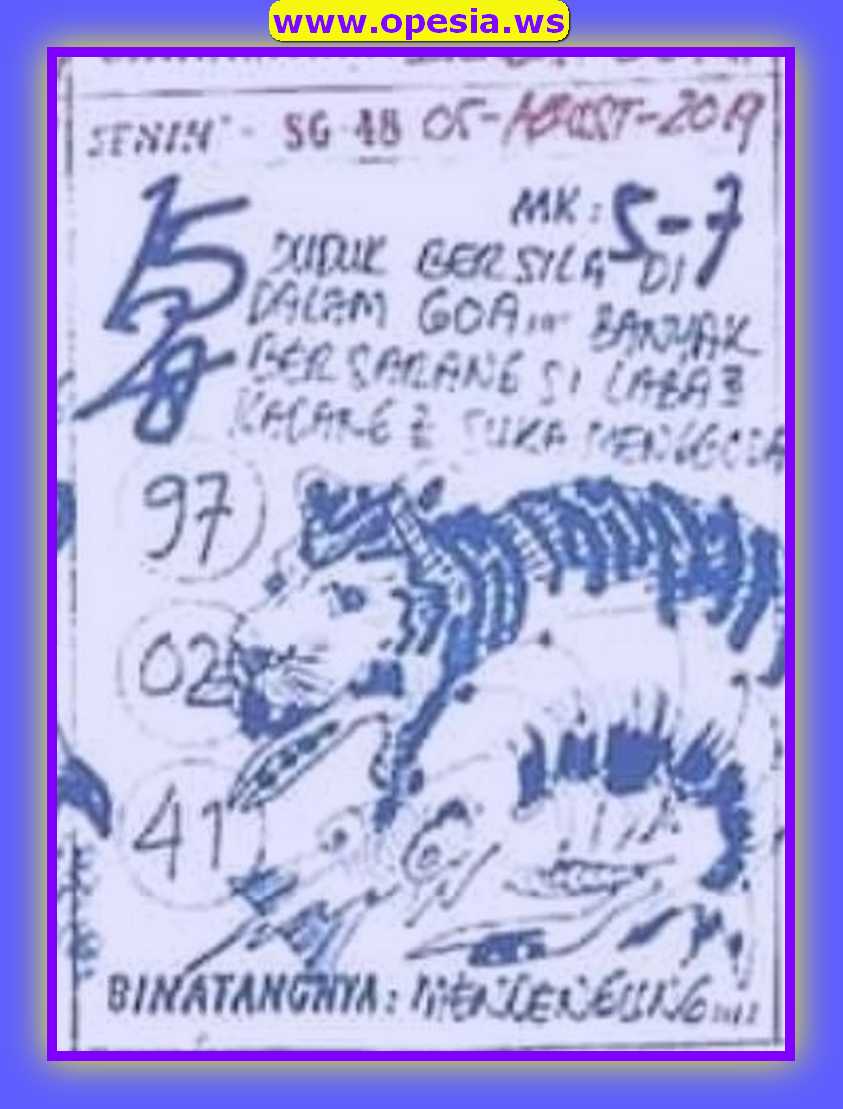 www.opesia.ws
SENIN - SG 48 05-AGUST-2019
MK: 5-7
15
28
DUDUK BERSILA DI
DALAM GOA... BANYAK
BERSARANG SI LABA2
KALANG2 SUKA MENGGODA
97
02
41
BINATANGNYA: